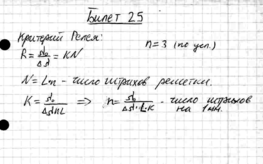 Билет 25
Критерий Релея:
n=3 (по усл.)
R = λ₀/Δλ = KN
N = Ln - число штрихов решетки.
K = λ₀/ΔλnL ⇒ n = λ₀/Δλ·L·K - число штрихов
на 1 мм.